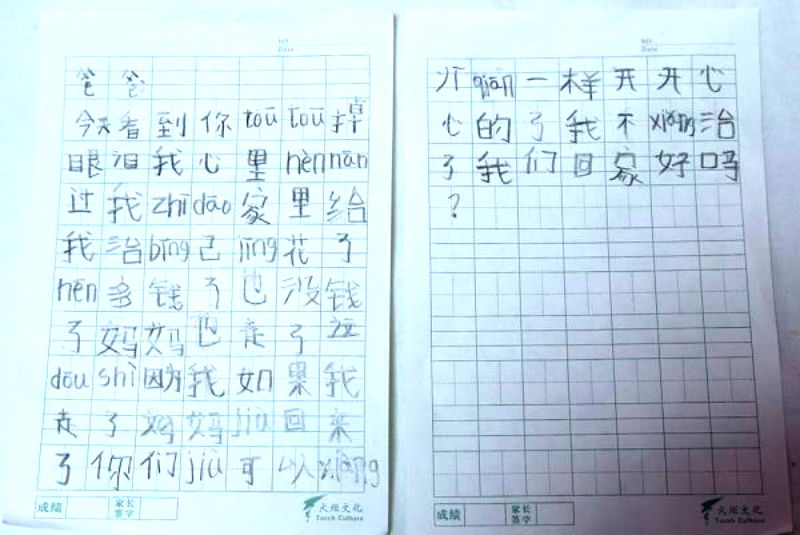 爸爸
今天看到你tōu tōu掉
眼泪我心里hěn nán
过我zhī dào家里给
我治bìng已jīng花了
hěn多钱了也没钱
了妈妈也走了这
dōu shì因为我如果我
走了妈妈jiù回来
了你们jiù可以xiàng
以qián一样开开心
心的了我不xiǎng治
了我们回家好吗
?
No.
Date
No.
Date
成绩
家长签字
火炬文化
Torch Culture
成绩
家长签字
火炬文化
Torch Culture